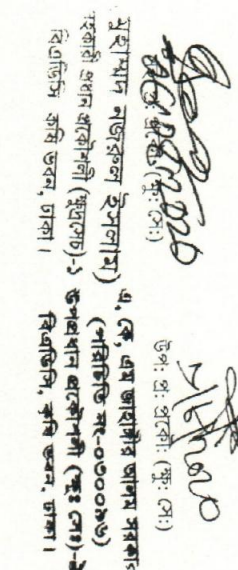 প্রঃ প্রকৌঃ (ক্ষুঃ সেঃ)
মুহাম্মদ নজরুল ইসলাম)
সহকারী প্রধান প্রকৌশলী (ক্ষুদ্রসেচ)-১
বিএডিসি কৃষি ভবন, ঢাকা।
উপঃ প্রঃ প্রকৌঃ (ক্ষুঃ সেঃ)
এ, কে, এম জাহাঙ্গীর আলম সরকার
(পরিচিতি নং-০৩০০৯৬)
উপপ্রধান প্রকৌশলী (ক্ষুঃ সেঃ)-২
বিএডিসি, কৃষি ভবন, ঢাকা।